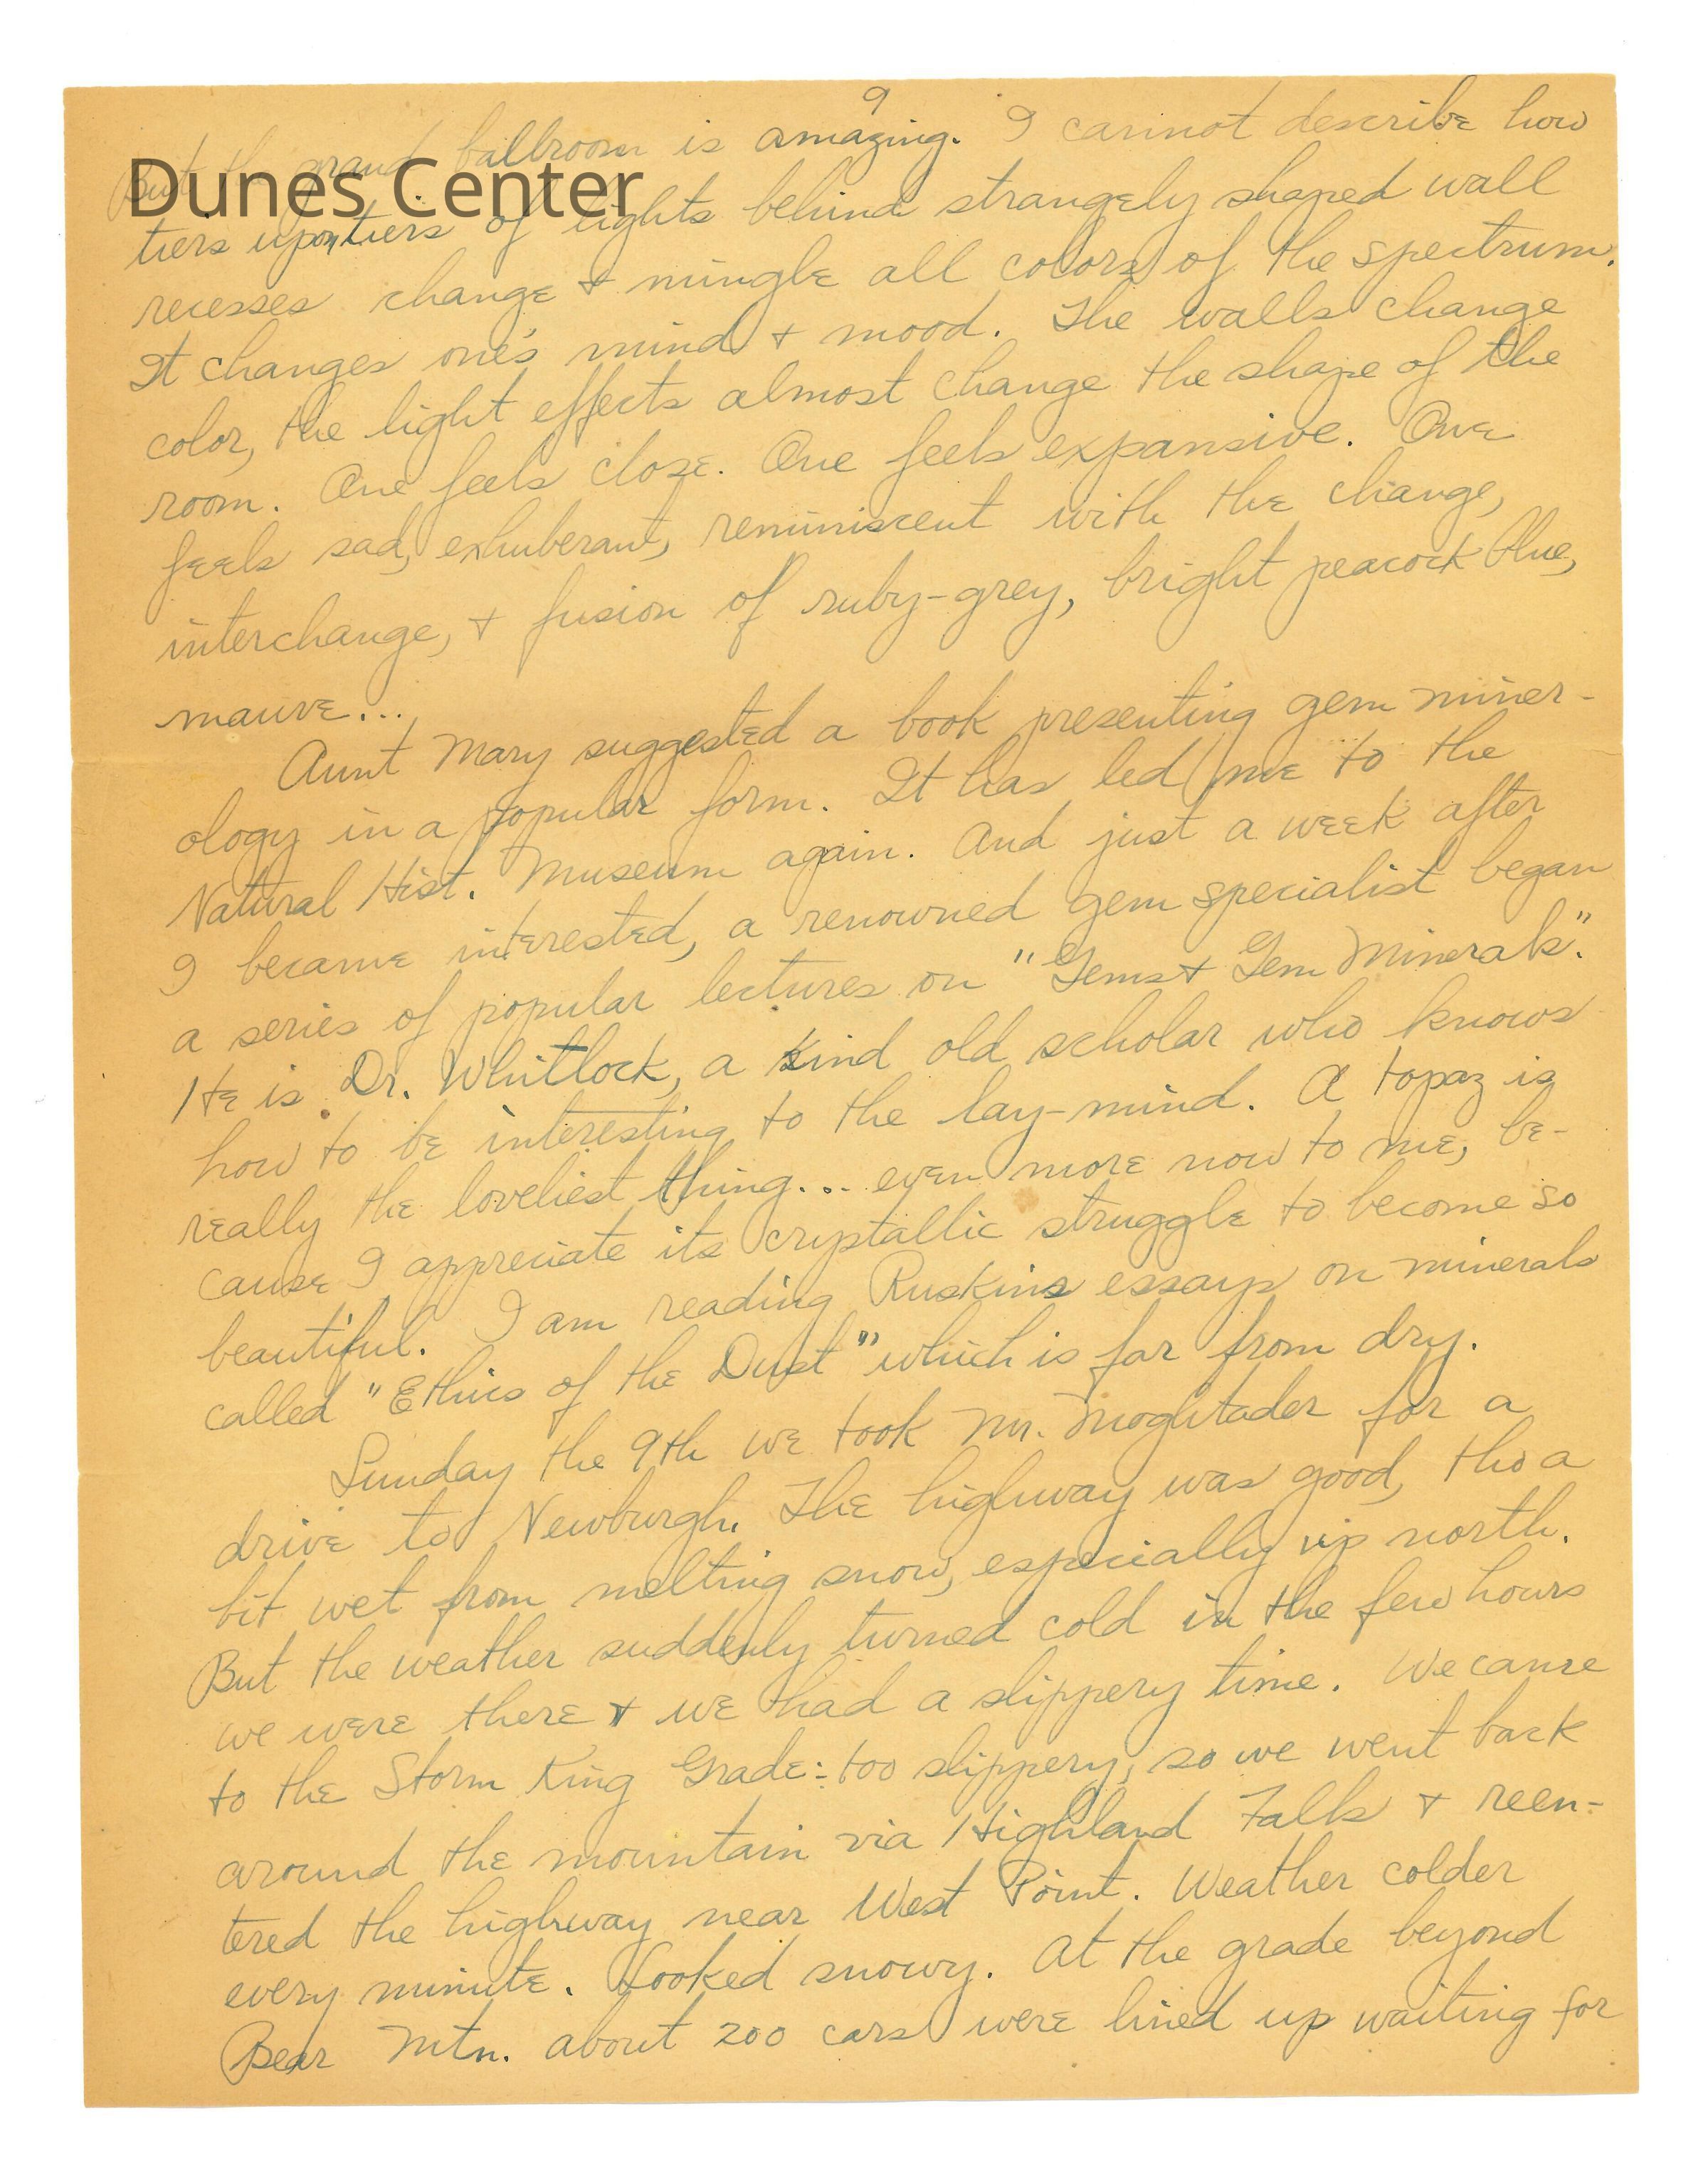 9
Dunes Center
But the grand ballroom is amazing. I cannot describe how
tiers upon tiers of lights behind strangely shaped wall
recesses change & mingle all colors of the spectrum.
It changes one's mind & mood. The walls change
color, the light effects almost change the shape of the
room. One feels close. One feels expansive. One
feels sad, exhuberant, reminiscent with the change,
interchange, & fusion of ruby-grey, bright peacock blue,
mauve...
Aunt Mary suggested a book presenting gem miner-
ology in a popular form. It has led me to the
Natural Hist. Museum again. And just a week after
I became interested, a renowned gem specialist began
a series of popular lectures on "Gems & Gem Minerals".
He is Dr. Whitlock, a kind old scholar who knows
how to be interesting to the lay-mind. A topaz is
really the loveliest thing... even more now to me, be-
cause I appreciate its crystallic struggle to become so
beautiful. I am reading Ruskins essays on minerals
called "Ethics of the Dust" which is far from dry.
Sunday the 9th we took Mr. Moghtader for a
drive to Newburgh. The highway was good, tho a
bit wet from melting snow, especially up north.
But the weather suddenly turned cold in the few hours
we were there & we had a slippery time. We came
to the Storm King Grade: too slippery, so we went back
around the mountain via Highland Falls & reen-
tered the highway near West Point. Weather colder
every minute. Looked snowy. At the grade beyond
Bear Mtn. about 200 cars were lined up waiting for